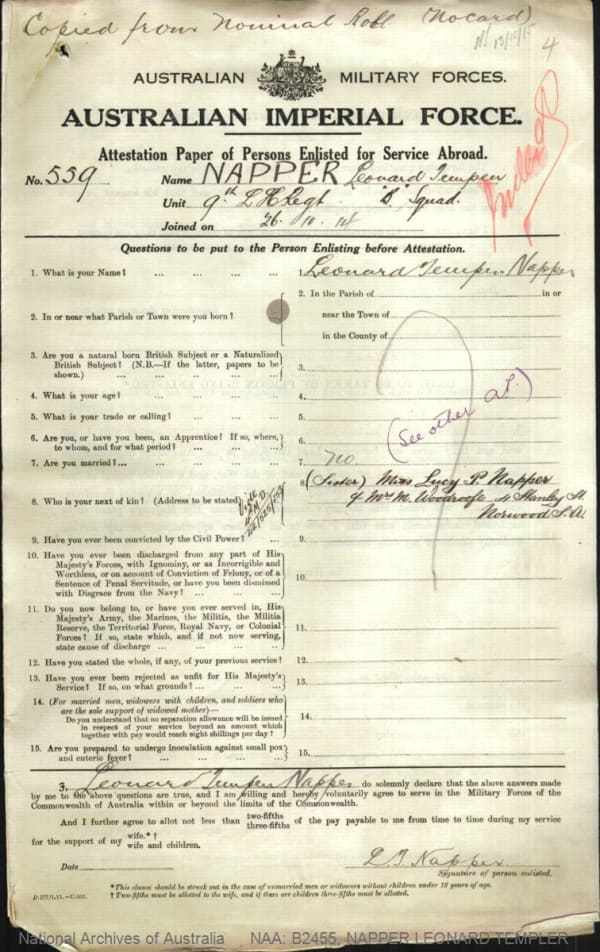 Copied from Nominal Roll (No card)
13/10/15
4
AUSTRALIAN MILITARY FORCES.
AUSTRALIAN IMPERIAL FORCE.
Attestation Paper of Persons Enlisted for Service Abroad.
No. 559 Name NAPPER Leonard Tempen
Unit 9th L H Regt "B" Squad.
Joined on 26. 10. 14
Questions to be put to the Person Enlisting before Attestation.
1. What is your Name? ... ... ... ... 1. Leonard Tempen Napper
2. In or near what Parish or Town were you born? ... 2. In the Parish of in or
near the Town of
in the County of
3. Are you a natural born British Subject or a Naturalized
British Subject? (N.B.—If the latter, papers to be
shown.) ... ... ... ... 3.
4. What is your age? ... ... ... ... 4.
5. What is your trade or calling? ... ... ... 5.
(See other A.P.)
6. Are you, or have you been, an Apprentice? If so, where,
to whom, and for what period? ... ... ... 6.
7. Are you married? ... ... ... ... 7. no.
8. Who is your next of kin? (Address to be stated) 8. (Sister) Miss Lucy P. Napper
℅ Mrs M. Woodroofe Stanley St.
Norwood S.A.
9. Have you ever been convicted by the Civil Power? 9.
10. Have you ever been discharged from any part of His
Majesty's Forces, with Ignominy, or as Incorrigible and
Worthless, or on account of Conviction of Felony, or of a
Sentence of Penal Servitude, or have you been dismissed
with Disgrace from the Navy? ... ... ... 10.
11. Do you now belong to, or have you ever served in, His
Majesty's Army, the Marines, the Militia, the Militia
Reserve, the Territorial Force, Royal Navy, or Colonial
Forces? If so, state which, and if not now serving,
state cause of discharge ... ... ... ... 11.
12. Have you stated the whole, if any, of your previous service? 12.
13. Have you ever been rejected as unfit for His Majesty's
Service? If so, on what grounds? ... ... ... 13.
14. (For married men, widowers with children, and soldiers who
are the sole support of widowed mother)—
Do you understand that no separation allowance will be issued
in respect of your service beyond an amount which
together with pay would reach eight shillings per day? ... 14.
15. Are you prepared to undergo inoculation against small pox
and enteric fever? ... ... ... ... 15.
I, Leonard Tempen Napper do solemnly declare that the above answers made
by me to the above questions are true, and I am willing and hereby voluntarily agree to serve in the Military Forces of the
Commonwealth of Australia within or beyond the limits of the Commonwealth.
And I further agree to allot not less than two-fifths three-fifths of the pay payable to me from time to time during my service
for the support of my wife.*† wife and children.
Date L T Napper
Signature of person enlisted.
*This clause should be struck out in the case of unmarried men or widowers without children under 18 years of age.
† Two-fifths must be allotted to the wife, and if there are children three-fifths must be allotted.
National Archives of Australia NAA: B2455, NAPPER LEONARD TEMPLER